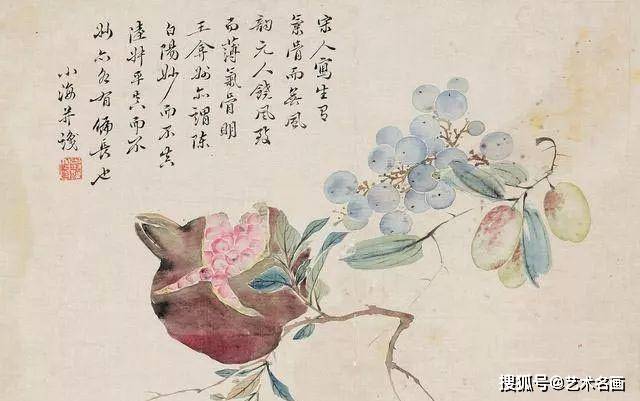 宋人寫生有
氣骨而無風
韵元人饒風致
而薄氣骨明
王弇州亦謂陳
白陽妙而不真
陸叔平真而不
妙亦各有偏長也
小海并識
搜狐号@艺术名画